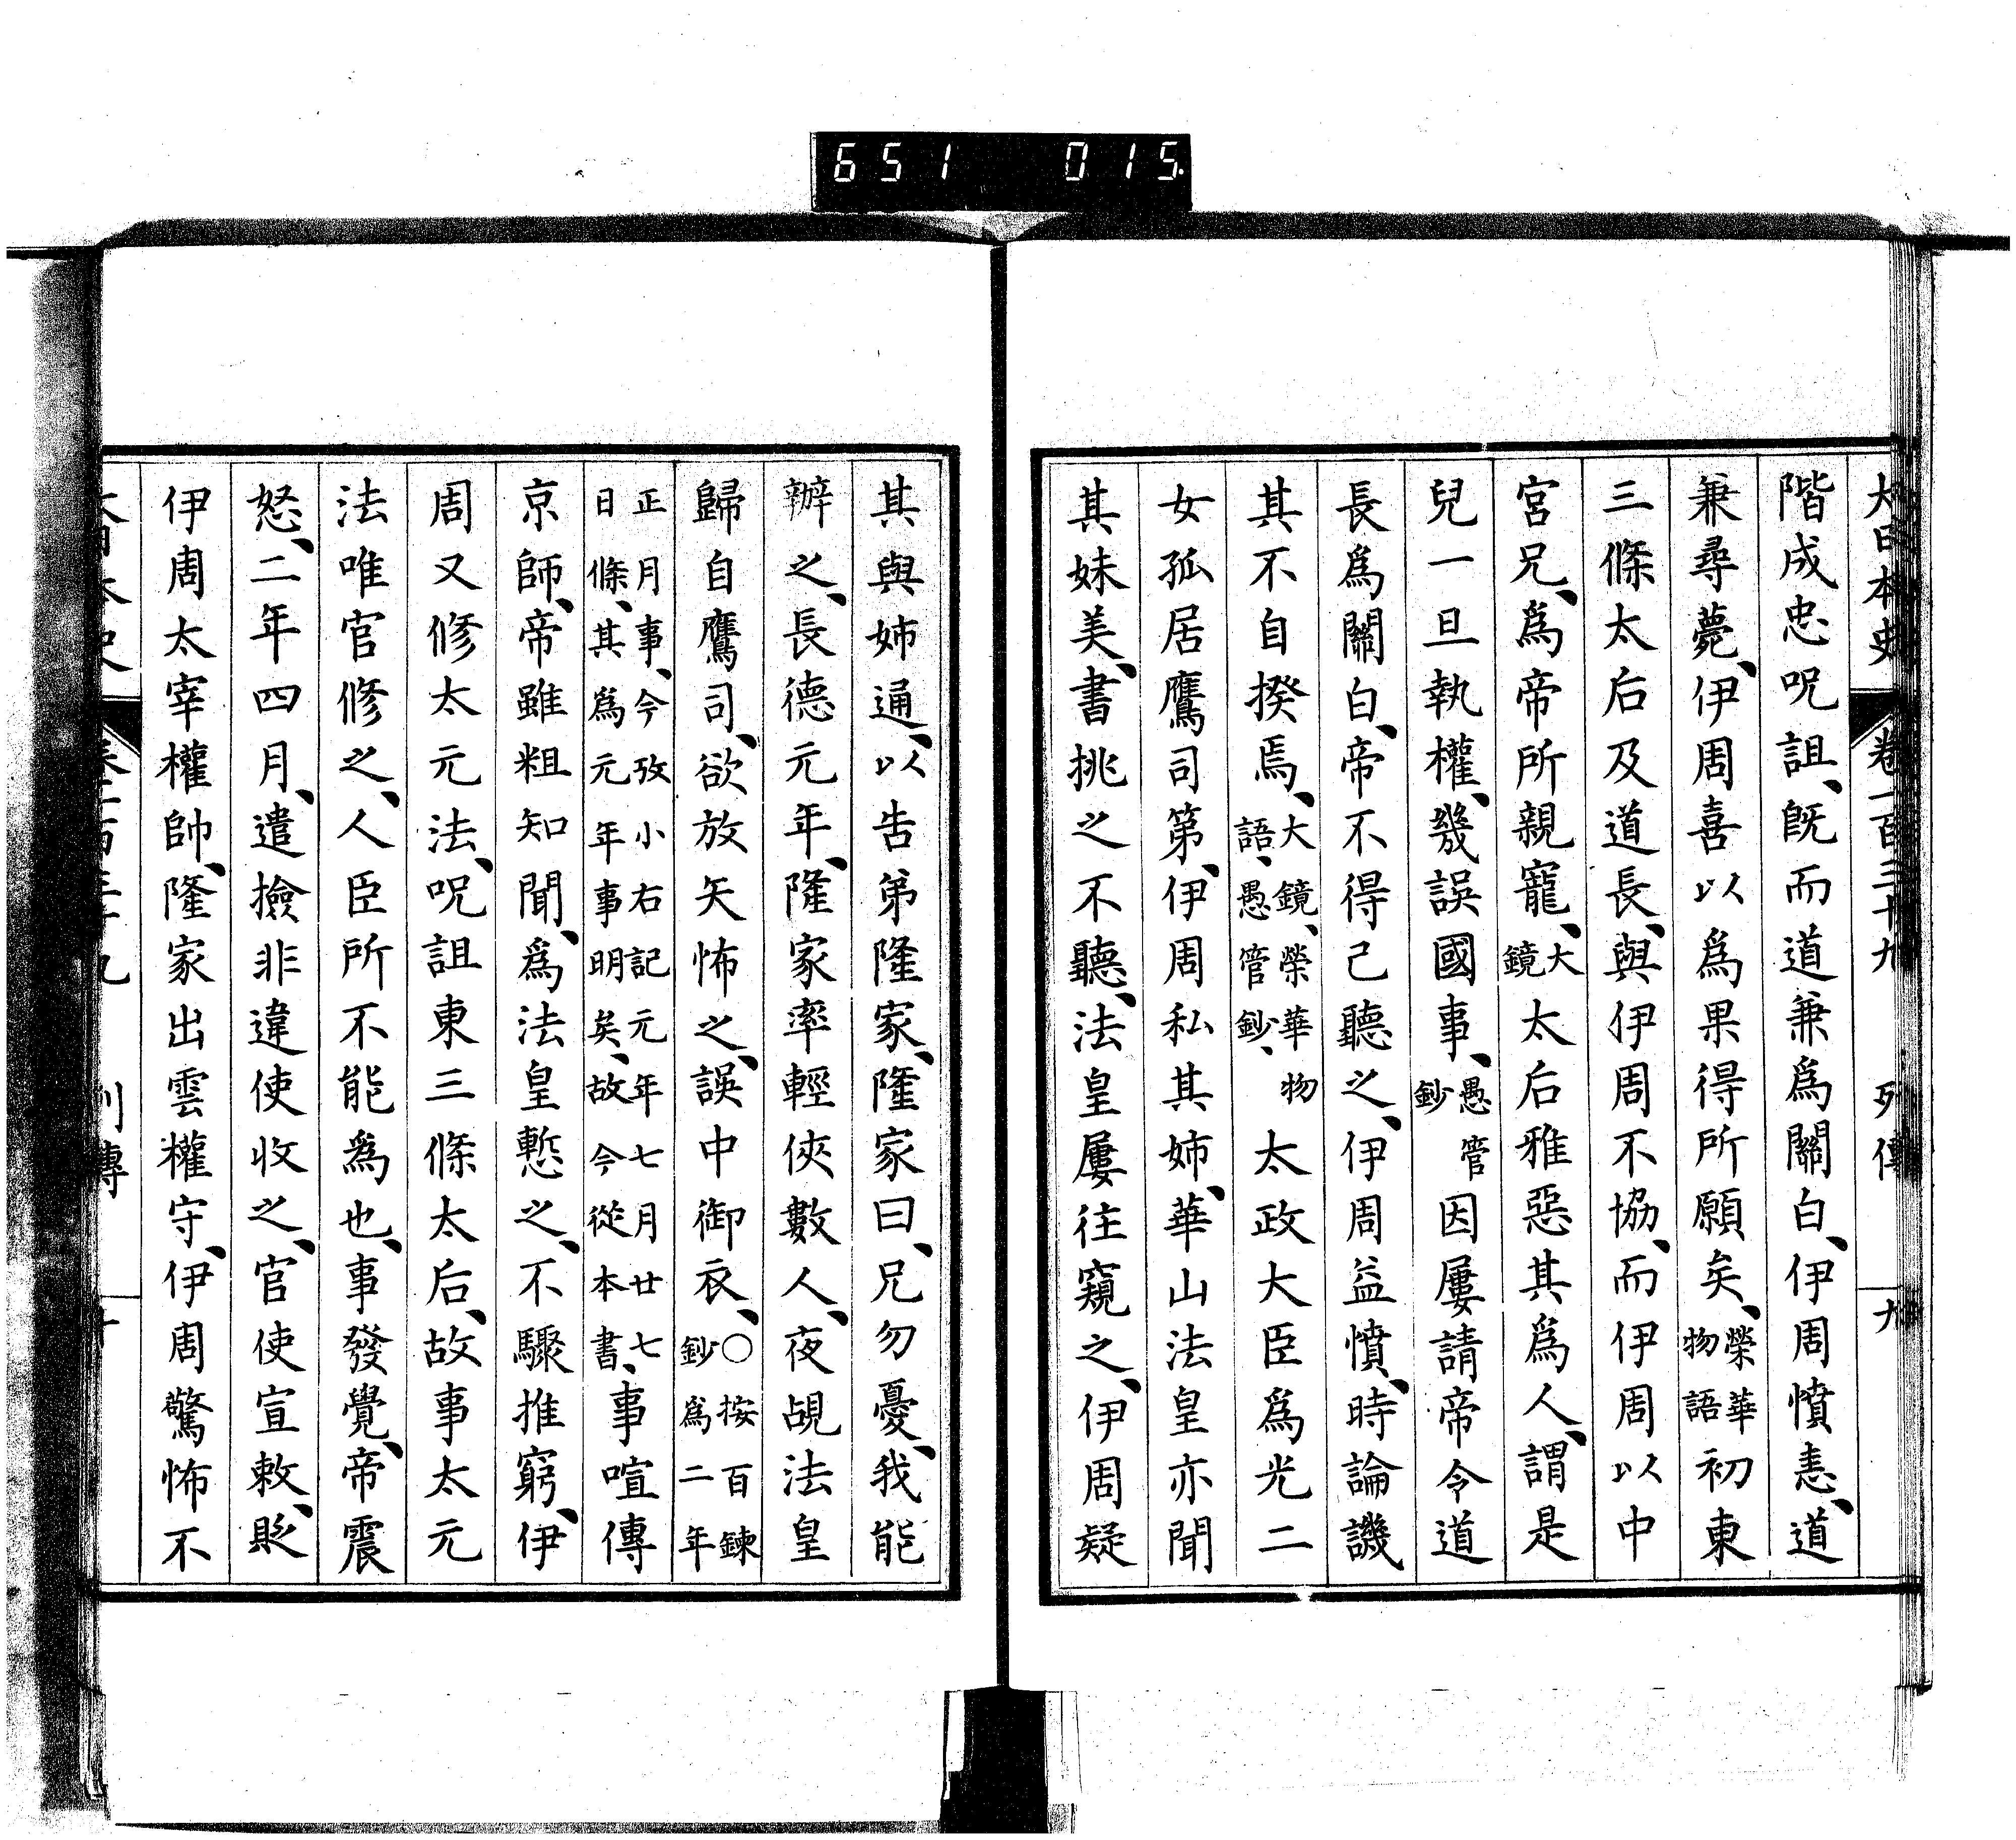 651 015.
大日本史 卷一百三十九 列傳 九
階成忠呪詛、旣而道兼爲關白、伊周憤恚、道
兼尋薨、伊周喜以爲果得所願矣、榮華物語初東
三條太后及道長、與伊周不協、而伊周以中
宮兄、爲帝所親寵、大鏡太后雅惡其爲人、謂是
兒一旦執權、幾誤國事、愚管鈔因屢請帝令道
長爲關白、帝不得已聽之、伊周益憤、時論譏
其不自揆焉、大鏡、榮華物語、愚管鈔、太政大臣爲光二
女孤居鷹司第、伊周私其姉、華山法皇亦聞
其妹美、書挑之不聽、法皇屢往窺之、伊周疑
其與姉通、以告弟隆家、隆家曰、兄勿憂、我能
辦之、長德元年、隆家率輕俠數人、夜覘法皇
歸自鷹司、欲放矢怖之、誤中御衣、○按百鍊鈔爲二年
正月事、今攷小右記元年七月廿七日條、其爲元年事明矣、故今從本書、事喧傳
京師、帝雖粗知聞、爲法皇慙之、不驟推窮、伊
周又修太元法、呪詛東三條太后、故事太元
法唯官修之、人臣所不能爲也、事發覺、帝震
怒、二年四月、遣撿非違使收之、官使宣敕、貶
伊周太宰權帥、隆家出雲權守、伊周驚怖不